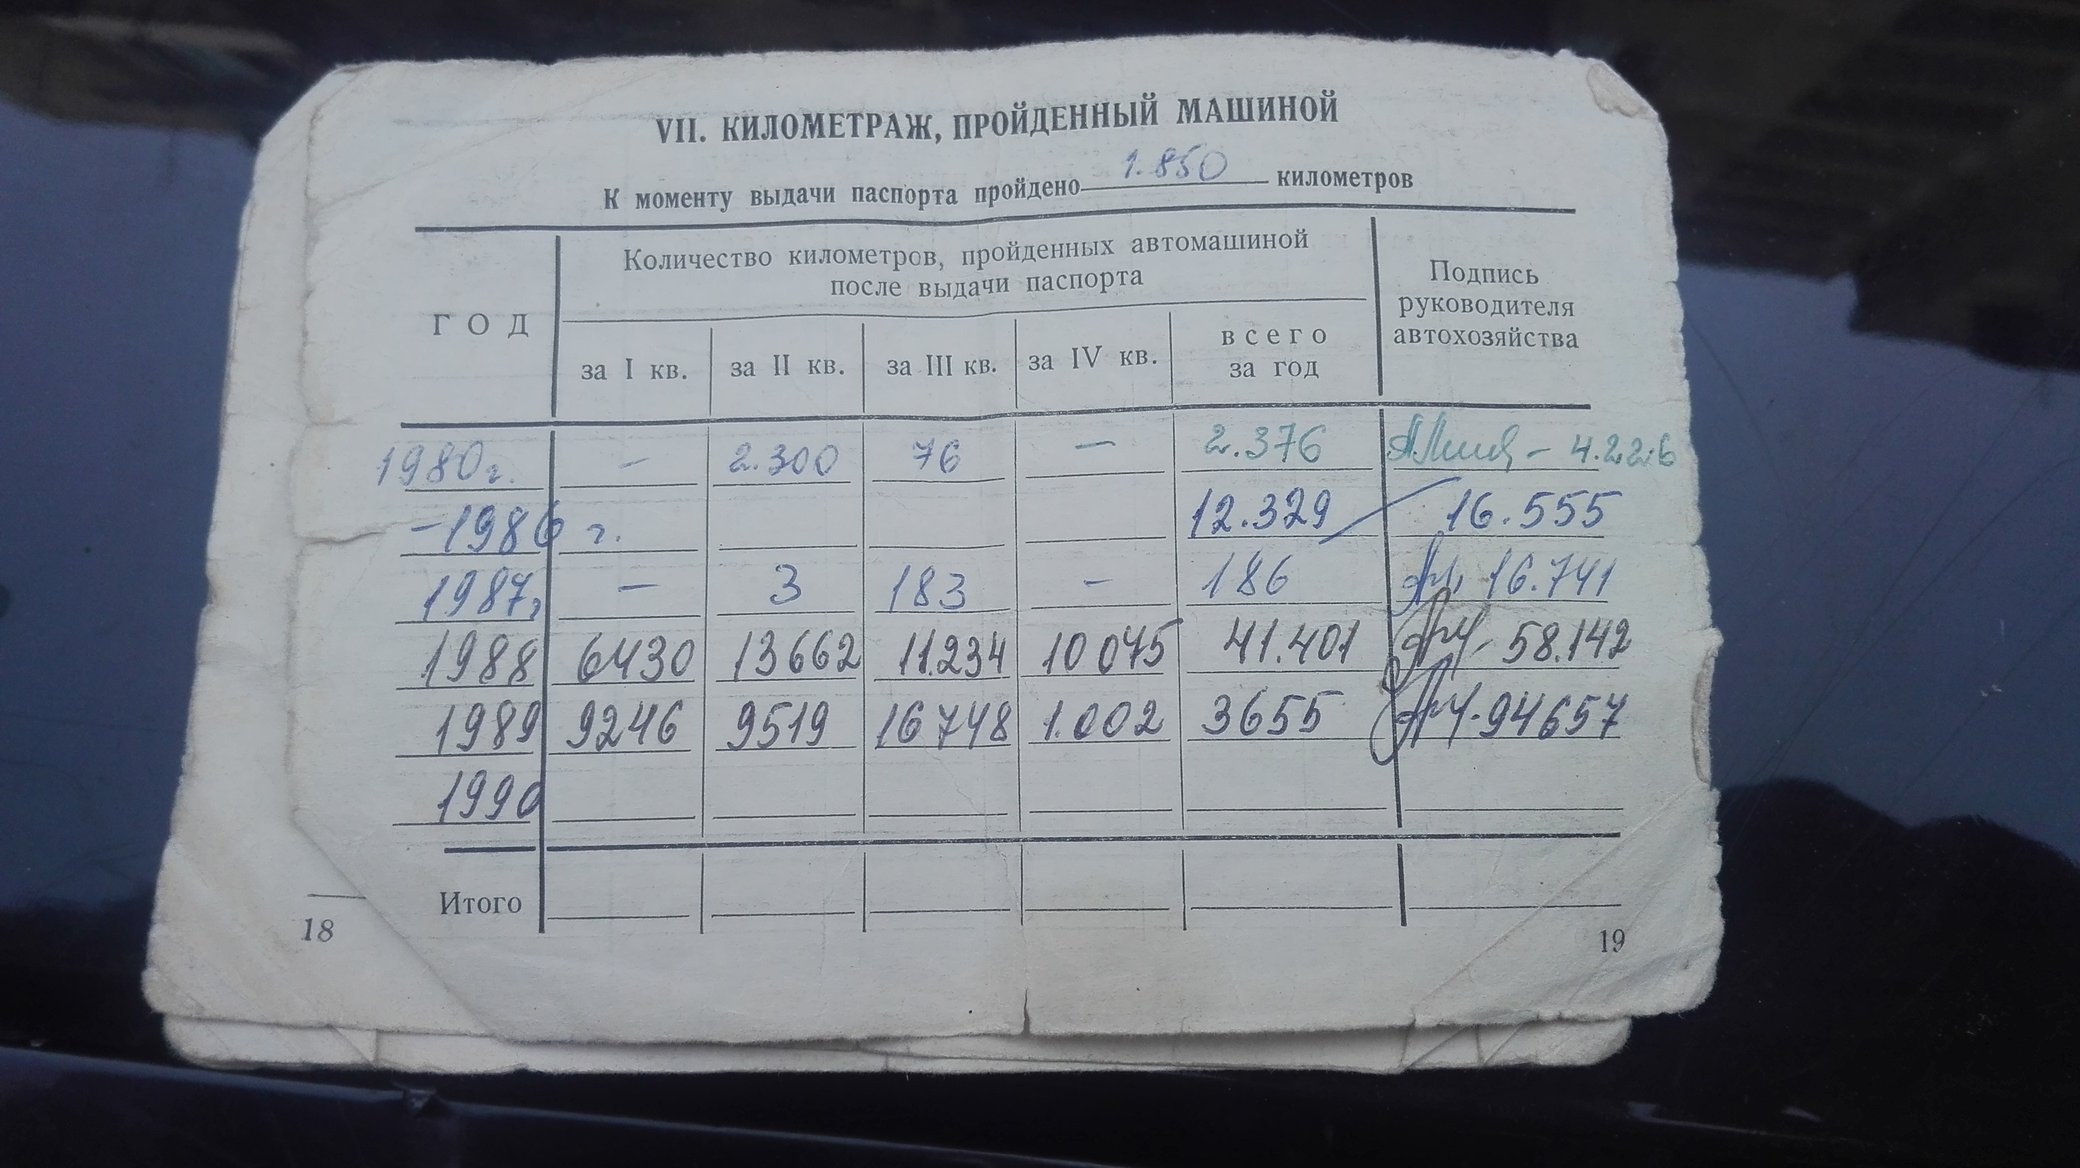 VII. КИЛОМЕТРАЖ, ПРОЙДЕННЫЙ МАШИНОЙ
К моменту выдачи паспорта пройдено 1.850 километров
ГОД
Количество километров, пройденных автомашиной
после выдачи паспорта
Подпись
руководителя
автохозяйства
за I кв. за II кв. за III кв. за IV кв. всего
за год
1980г. — 2.300 76 — 2.376 - 4.226
-1986 г. 12.329 16.555
1987г — 3 183 - 186 16.741
1988 6430 13662 11.234 10 075 41.401 58.142
1989 9246 9519 16748 1.002 3655 94657
1990
Итого
18
19